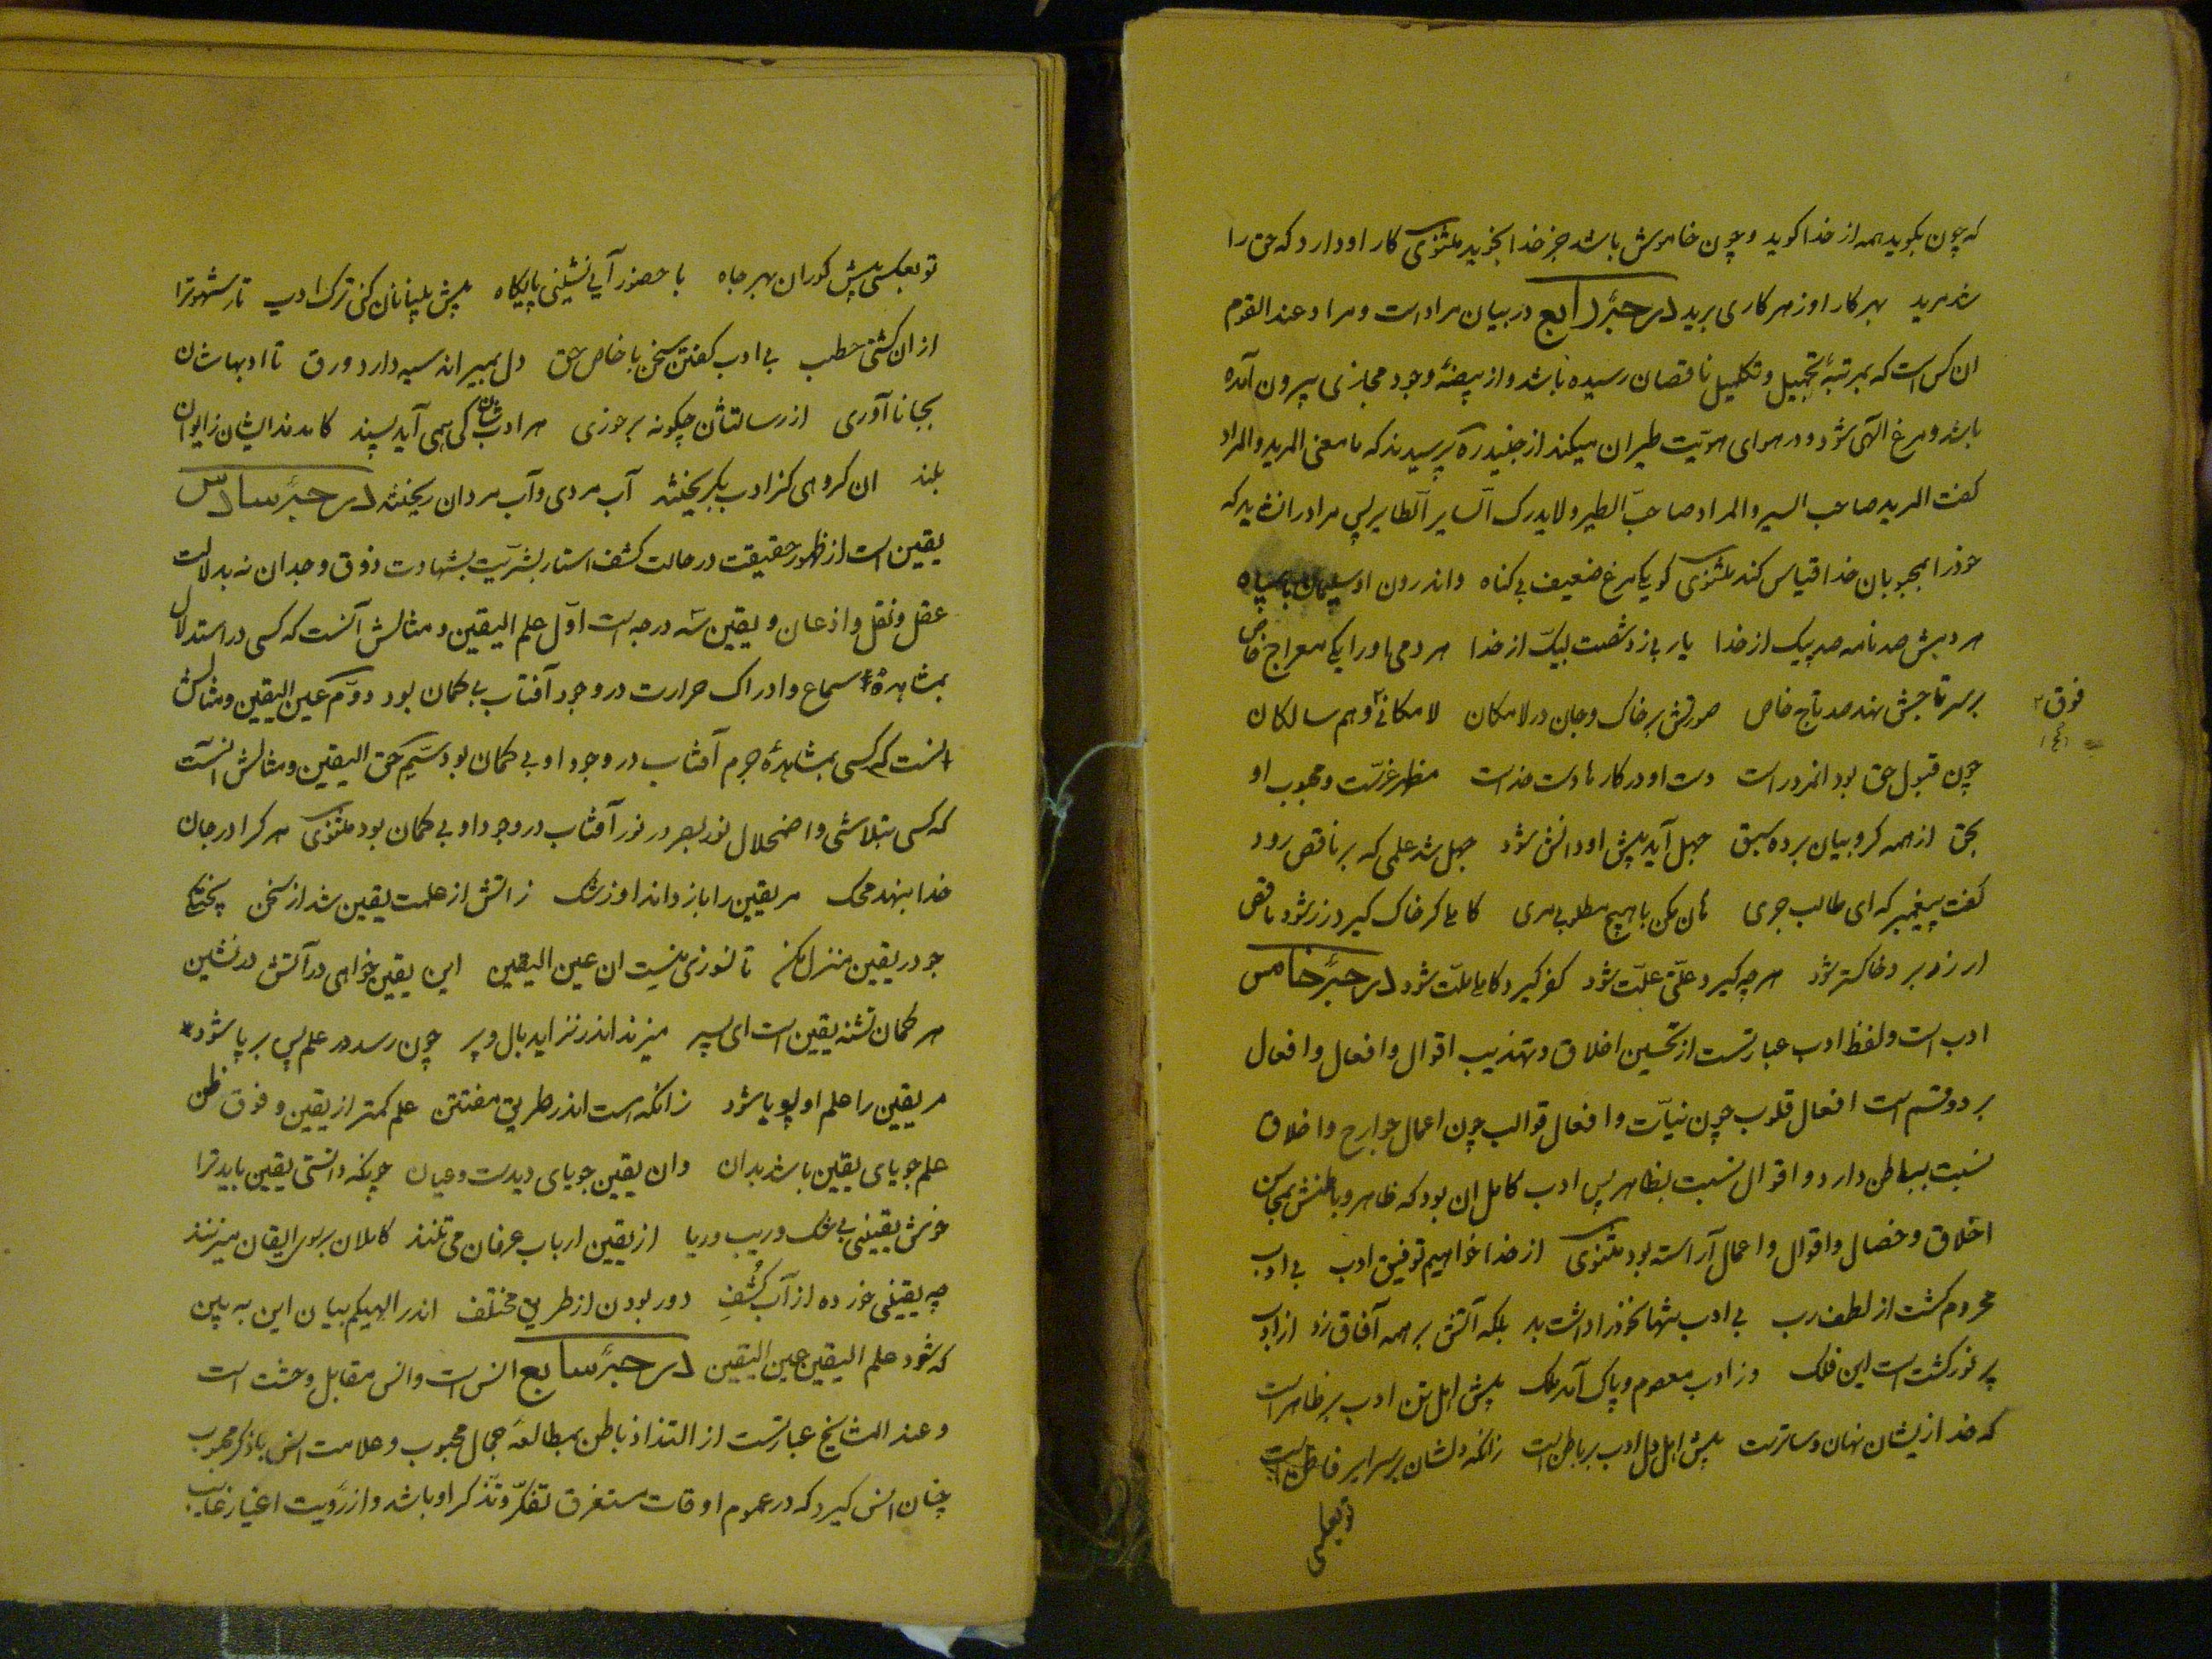 که چون بگوید همه از خدا گوید و چون خاموش باشد جز خدا نجوید مثنوی کار او دارد که حق را
شد مرید بهر کار او ز هر کاری برید درجهٔ رابع در بیان مراد است و مراد عند القوم
ان کس است که بمرتبهٔ تکمیل ناقصان رسیده باشد و از بیضهٔ وجود مجازی بیرون آمده
باشد و مرغ الهی شود و در هوای هویت طیران میکند از جنید ره پرسیدند که ما معنی المرید و المراد
گفت المرید صاحب السیر و المراد صاحب الطیر و لا یدرک السایر الطایر پس مراد را نشاید که
خود را بمحبوبان خدا قیاس کند مثنوی کو یکی مرغ ضعیف بی گناه و اندرون او سلیمان با سپاه
هر دمش صد نامه صد پیک از خدا یا ربی زو شصت لبیک از خدا هر دمی او را یکی معراج خاص
بر سر تاجش نهد صد تاج خاص صورتش بر خاک و جان در لامکان لامکانی ۲ وهم سالکان
فوق ۲
چون قبول حق بود انمرد راست دست او در کارها دست خداست مظهر عزتست و محبوب او
بحق از همه کروبیان برده سبق جهل آید پیش او دانش شود جهل شد علمی که بر ناقص رود
گفت پیغمبر که ای طالب جری هان مکن با هیچ مطلوبی مری کاملی گر خاک گیرد زر شود ناقص
ار زر برد خاکستر شود هر چه گیرد علتی علت شود کفر گیرد کاملی ملت شود درجهٔ خامس
ادب است و لفظ ادب عبارتست از تحسین اخلاق و تهذیب اقوال و افعال و افعال
بر دو قسم است افعال قلوب چون نیات و افعال قوالب چون اعمال جوارح و اخلاق
نسبت بباطن دارد و اقوال نسبت بظاهر پس ادب کامل ان بود که ظاهر و باطنش بمحاسن
اخلاق و خصال و اقوال و اعمال آراسته بود مثنوی از خدا خواهیم توفیق ادب بی ادب
محروم گشت از لطف رب بی ادب تنها نه خود را داشت بد بلکه آتش بر همه آفاق زد از ادب
پر نور گشت است این فلک وز ادب معصوم و پاک آمد ملک پیش اهل تن ادب بر ظاهر است
که خدا زیشان نهان و ساترست پیش اهل دل ادب بر باطن است زانکه دلشان بر سرایر فاطن است
تو بعکسی
تو بعکسی پیش کوران بهر جاه با حضور آیی نشینی پایگاه پیش بینایان کنی ترک ادب نار شهوترا
ازان گشتی حطب بی ادب گفتن سخن با خاص حق دل بمیراند سیه دارد ورق تا ادبهاشان
بجا ناآوری از رسالتشان چگونه بر خوری هر ادبشان کی همی آید پسند کامدند ایشان ز ایوان
بلند ان گروهی کز ادب بگریختند آب مردی و آب مردان ریختند درجهٔ سادس
یقین است از ظهور حقیقت در حالت کشف استار بشریت بشهادت ذوق و وجدان نه بدلالت
عقل و نقل و اذعان و یقین سه درجه است اول علم الیقین و مثالش آنست که کسی در استدلال
بمشاهدهٔ سماع و ادراک حرارت در وجود آفتاب بی گمان بود دوم عین الیقین و مثالش
انست که کسی بمشاهدهٔ جرم آفتاب در وجود او بی گمان بود سیم حق الیقین و مثالش انست
که کسی بتلاشی و اضمحلال نور بصر در نور آفتاب در وجود او بی گمان بود مثنوی هر کرا در جان
خدا بنهد محک مر یقین را باز داند او ز شک ز آتش از علمت یقین شد از سخن پختگی
جو در یقین منزل مکن تا نسوزی نیست ان عین الیقین این یقین خواهی در آتش در نشین
هر گمان تشنه یقین است ای پسر میزند اندر تزاید بال و پر چون رسد در علم پس بر پا شود
مر یقین را علم او پویا شود زانکه است اندر طریق مفتتن علم کمتر از یقین و فوق ظن
علم جویای یقین باشد بدان وان یقین جویای دیدست و عیان چونکه دانستی یقین باید ترا
خوش یقینی بی شک و ریب و ریا از یقین ارباب عرفان می تنند کاملان بر بوی ایقان میزنند
چه یقینی خورده از آب کشف دور بودن از طریق مختلف اندر الهیکم بیان این به بین
که شود علم الیقین عین الیقین درجهٔ سابع انس است و انس مقابل وحشت است
و عند المشایخ عبارتست از التذاذ باطن بمطالعهٔ جمال محبوب و علامت انس با ذکر محبوب
چنان انس گیرد که در عموم اوقات مستغرق تفکر و تذکر او باشد و از رؤیت اغیار غایب